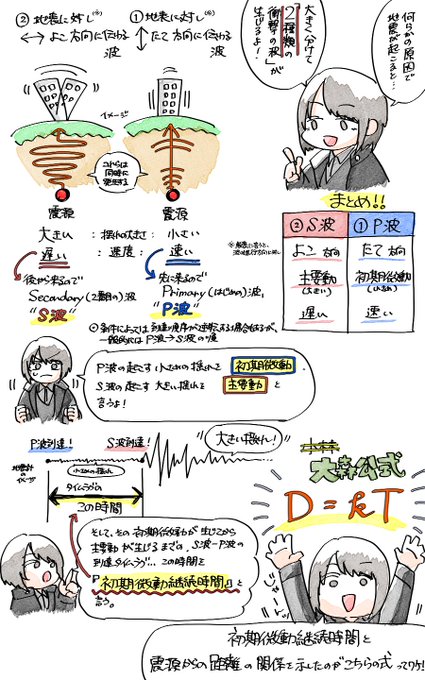 何らかの原因で
地震が起こると…
大きく分けて
2種類の
「衝撃の波」が
生じるよ!
① 地表に対し(※)
たて方向に伝わる
波
② 地表に対し(※)
よこ方向に伝わる
波
イメージ
これらは
同時に
発生する
震源
震源
小さい
:揺れの大きさ:
大きい
速い
:速度:
遅い
先に来るので
Primary(はじめの)波、
"P波"
後から来るので
Secondary(2番目の)波
"S波"
まとめ!!
① P波
② S波
たて方向
よこ方向
初期微動
(小さめ)
主要動
(大きい)
速い
遅い
一般的にはP波→S波の順
P波の起こす小さめの揺れを 初期微動
S波の起こす大きい揺れを 主要動 と
言うよ!
P波到達!
S波到達!
大きい揺れ!
小さめの揺れ
地震計
のイメージ
タイムラグ
この時間
そして、その初期微動が生じてから
主要動が生じるまでの、S波-P波の
到達タイムラグ… この時間を
『初期微動継続時間』と
言う。
大森公式
D = kT
じゃーん
初期微動継続時間と
震源からの「距離」の関係を示したのがこちらの式ってワケ!